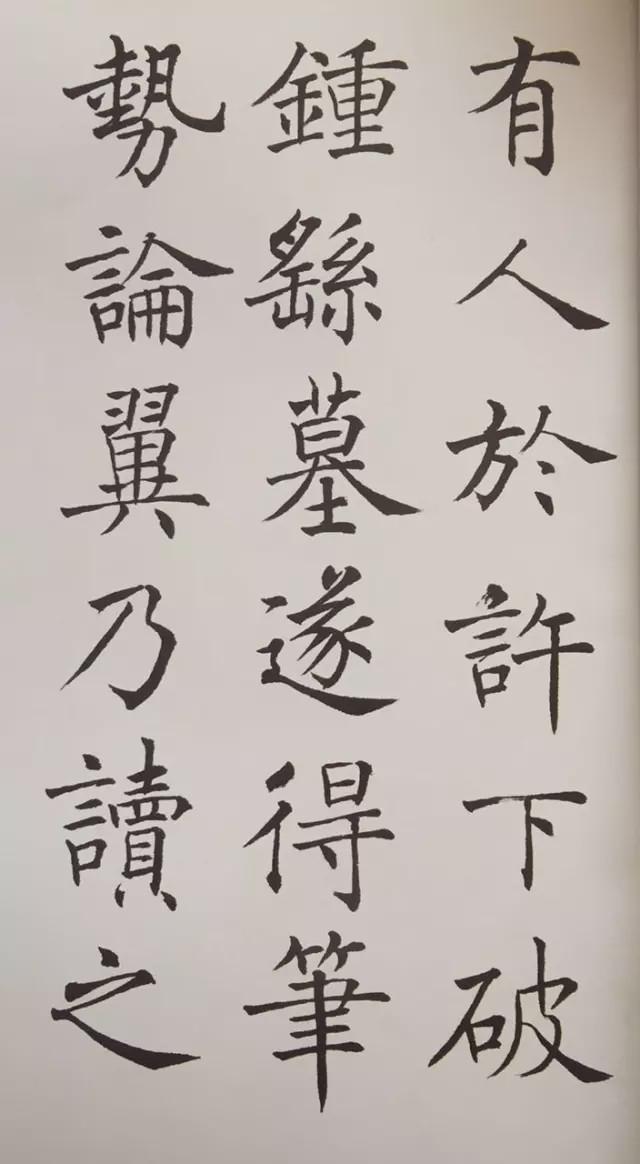 有人於許下破
鍾繇墓遂得筆
勢論翼乃讀之